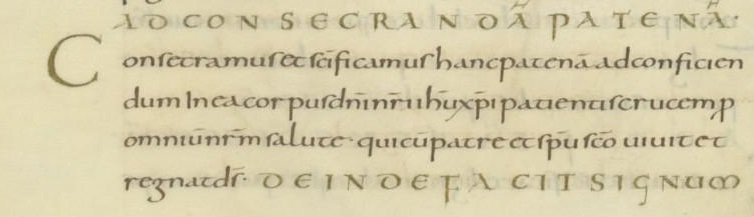 AD CONSECRANDĀ PATENĀ·
Consecramus et sc̄ificamus hanc patenā ad conficien
dum In ea corpus dn̄i nr̄i ih̄u xp̄i patientis crucem ꝑ
omniū nr̄m salute· qui cū patre et sp̄u sc̄o uiuit et
regnat ds̄· DEINDE FACIT SIGNUM